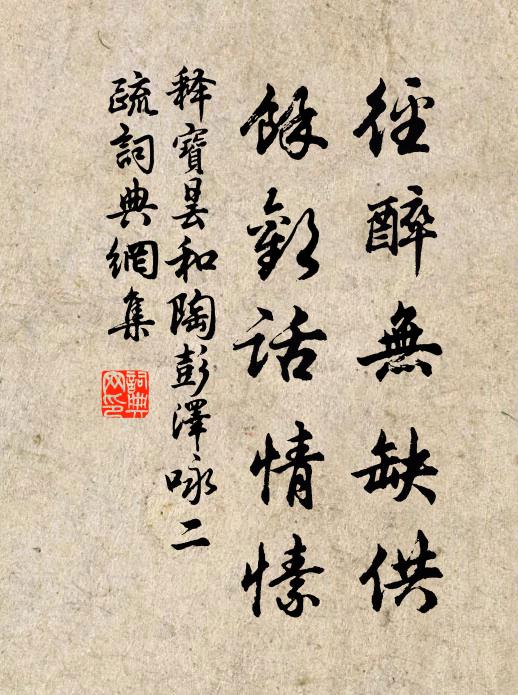 徑醉無缺供
餘歡話情愫
釋寶曇和陶彭澤咏二
疏詞典網集
詞典
网印